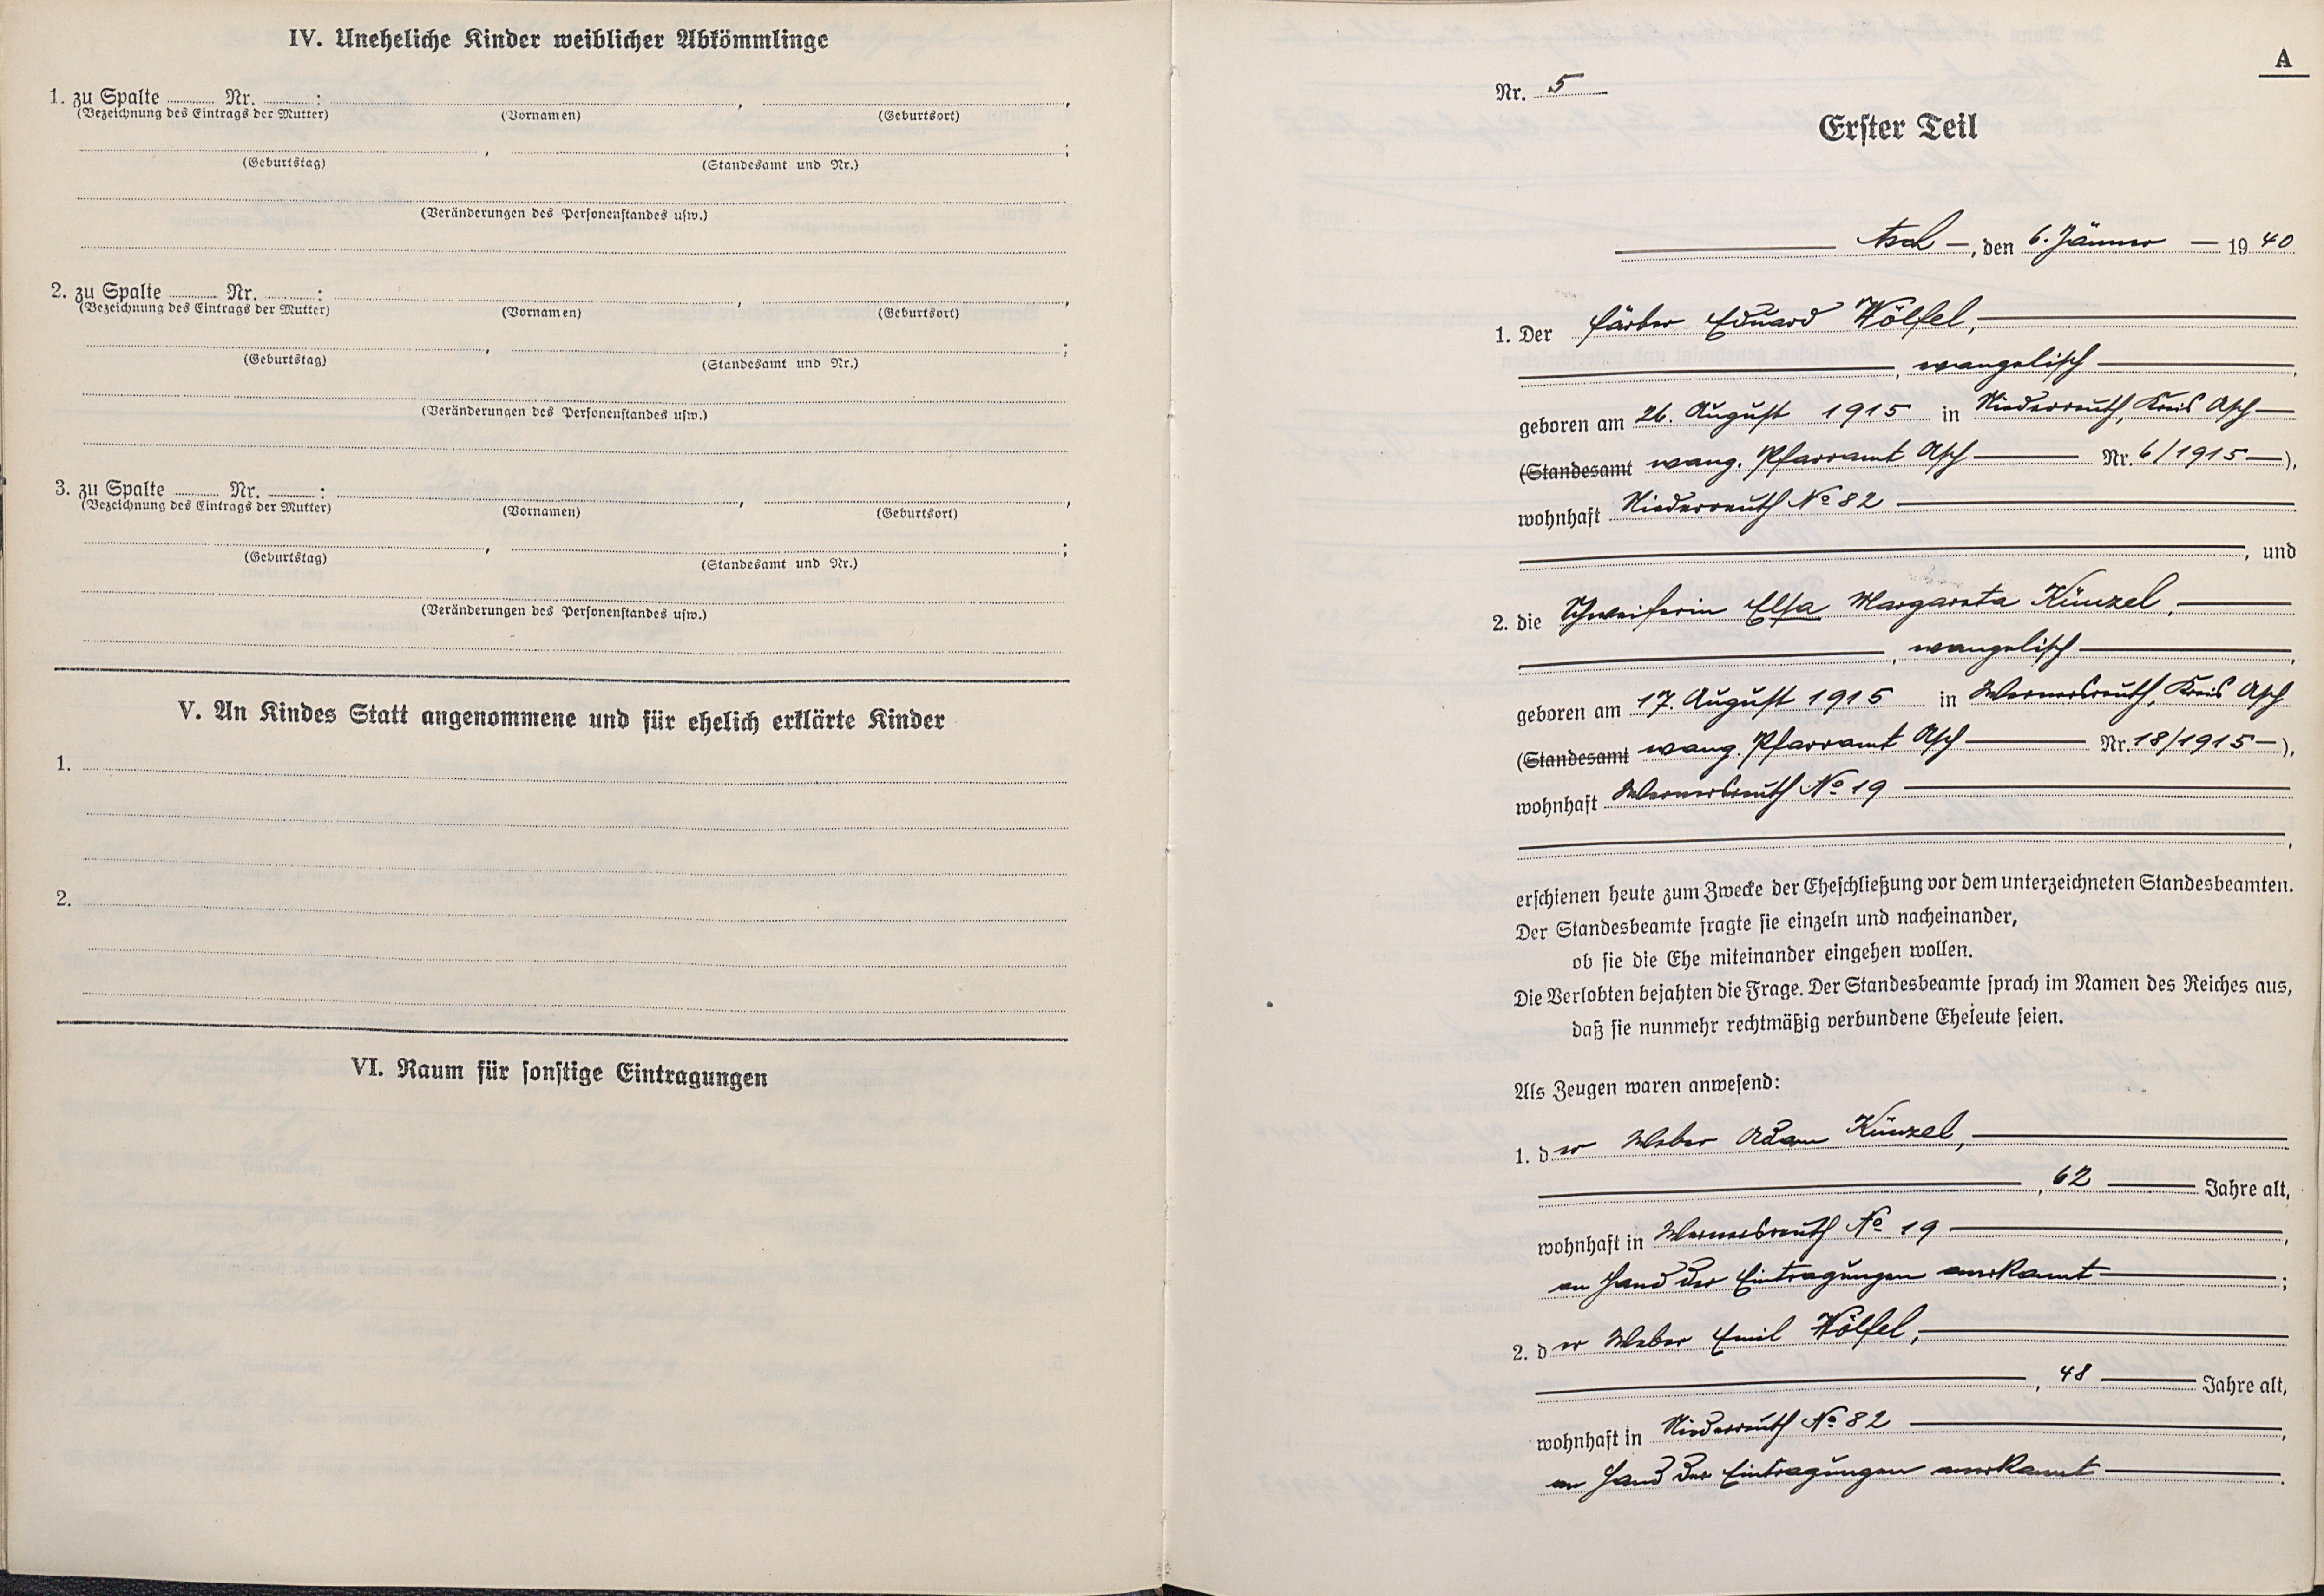 IV. Uneheliche Kinder weiblicher Abkömmlinge
1. zu Spalte Nr. : , ,
(Bezeichnung des Eintrags der Mutter) (Vornamen) (Geburtsort)
, ;
(Geburtstag) (Standesamt und Nr.)
(Veränderungen des Personenstandes usw.)
2. zu Spalte Nr. : , ,
(Bezeichnung des Eintrags der Mutter) (Vornamen) (Geburtsort)
, ;
(Geburtstag) (Standesamt und Nr.)
(Veränderungen des Personenstandes usw.)
3. zu Spalte Nr. : , ,
(Bezeichnung des Eintrags der Mutter) (Vornamen) (Geburtsort)
, ;
(Geburtstag) (Standesamt und Nr.)
(Veränderungen des Personenstandes usw.)
V. An Kindes Statt angenommene und für ehelich erklärte Kinder
1.
2.
VI. Raum für sonstige Eintragungen
A
Nr. 5
Erster Teil
Asch —, den 6. Jänner — 19 40
1. Der Färber Eduard Wölfel,
, evangelisch ,
geboren am 26. August 1915 in Niederreuth, Kreis Asch —
(Standesamt evang. Pfarramt Asch — Nr. 6/1915 —),
wohnhaft Niederreuth No 82
, und
2. die Schweiferin Elsa Margareta Künzel,
, evangelisch ,
geboren am 17. August 1915 in Wernersreuth, Kreis Asch
(Standesamt evang. Pfarramt Asch — Nr. 18/1915 —),
wohnhaft Wernersreuth No 19
,
erschienen heute zum Zwecke der Eheschließung vor dem unterzeichneten Standesbeamten.
Der Standesbeamte fragte sie einzeln und nacheinander,
ob sie die Ehe miteinander eingehen wollen.
Die Verlobten bejahten die Frage. Der Standesbeamte sprach im Namen des Reiches aus,
daß sie nunmehr rechtmäßig verbundene Eheleute seien.
Als Zeugen waren anwesend:
1. der Weber Adam Künzel,
, 62 — Jahre alt,
wohnhaft in Wernersreuth No 19 ,
an Hand der Eintragungen anerkannt — ;
2. der Weber Emil Wölfel,
, 48 — Jahre alt,
wohnhaft in Niederreuth No 82 ,
an Hand der Eintragungen anerkannt — .